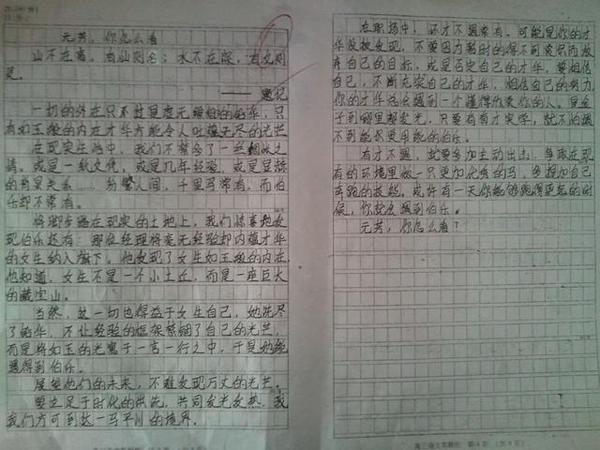 元芳，你怎么看
山不在高，有仙则名；水不在深，有龙则
灵。
——题记
一切的外在只不过是虚无缥缈的铅华，只
有如玉般的内在才华方能令人吐蕴无尽的光芒
在现实生活中，我们不难会了一些相似之
情。或是一纸文凭，或是几年经验，或是显赫
的背景关系……纷繁人间，千里马常有，而伯
乐却不常有。
将脚步踏在现实的土地上，我们惊喜地发
现伯乐还有：那位经理将毫无经验却内蕴才华
的女生纳入旗下。他发现了女生如玉般的内在
他知道，女生不是一个小土丘，而是一座巨大
的藏宝山。
当然，这一切也得益于女生自己，她洗尽
了铅华，不让经验的框架紧锢了自己的光芒，
而是将如玉的光寓于一言一行之中，于是她能
遇得到伯乐。
展望他们的未来，不难发现万丈的光芒。
要立足于时代的洪流，共同发光发热，我
我们方可到达一马平川的境界。
在职场中，怀才不遇常有。可能是你的才
华没被发现，不要因为暂时的得不到赏识而放
弃自己的目标，或是否定自己的才华。要相信
自己，不断充实自己的才华，相信自己的努力
你的才华总会遇到一个懂得欣赏你的人。是金
子到哪里都发光，只要有真才实学，就不怕遇
不到能尽重用能的伯乐。
有才不遇，就要多加主动出击，争取在现
有的环境里做一只更加优秀的马，多提加自己
奔跑的技能。或许有一天你能够跑得更远的时
候，你就会遇到伯乐。
元芳，你怎么看？